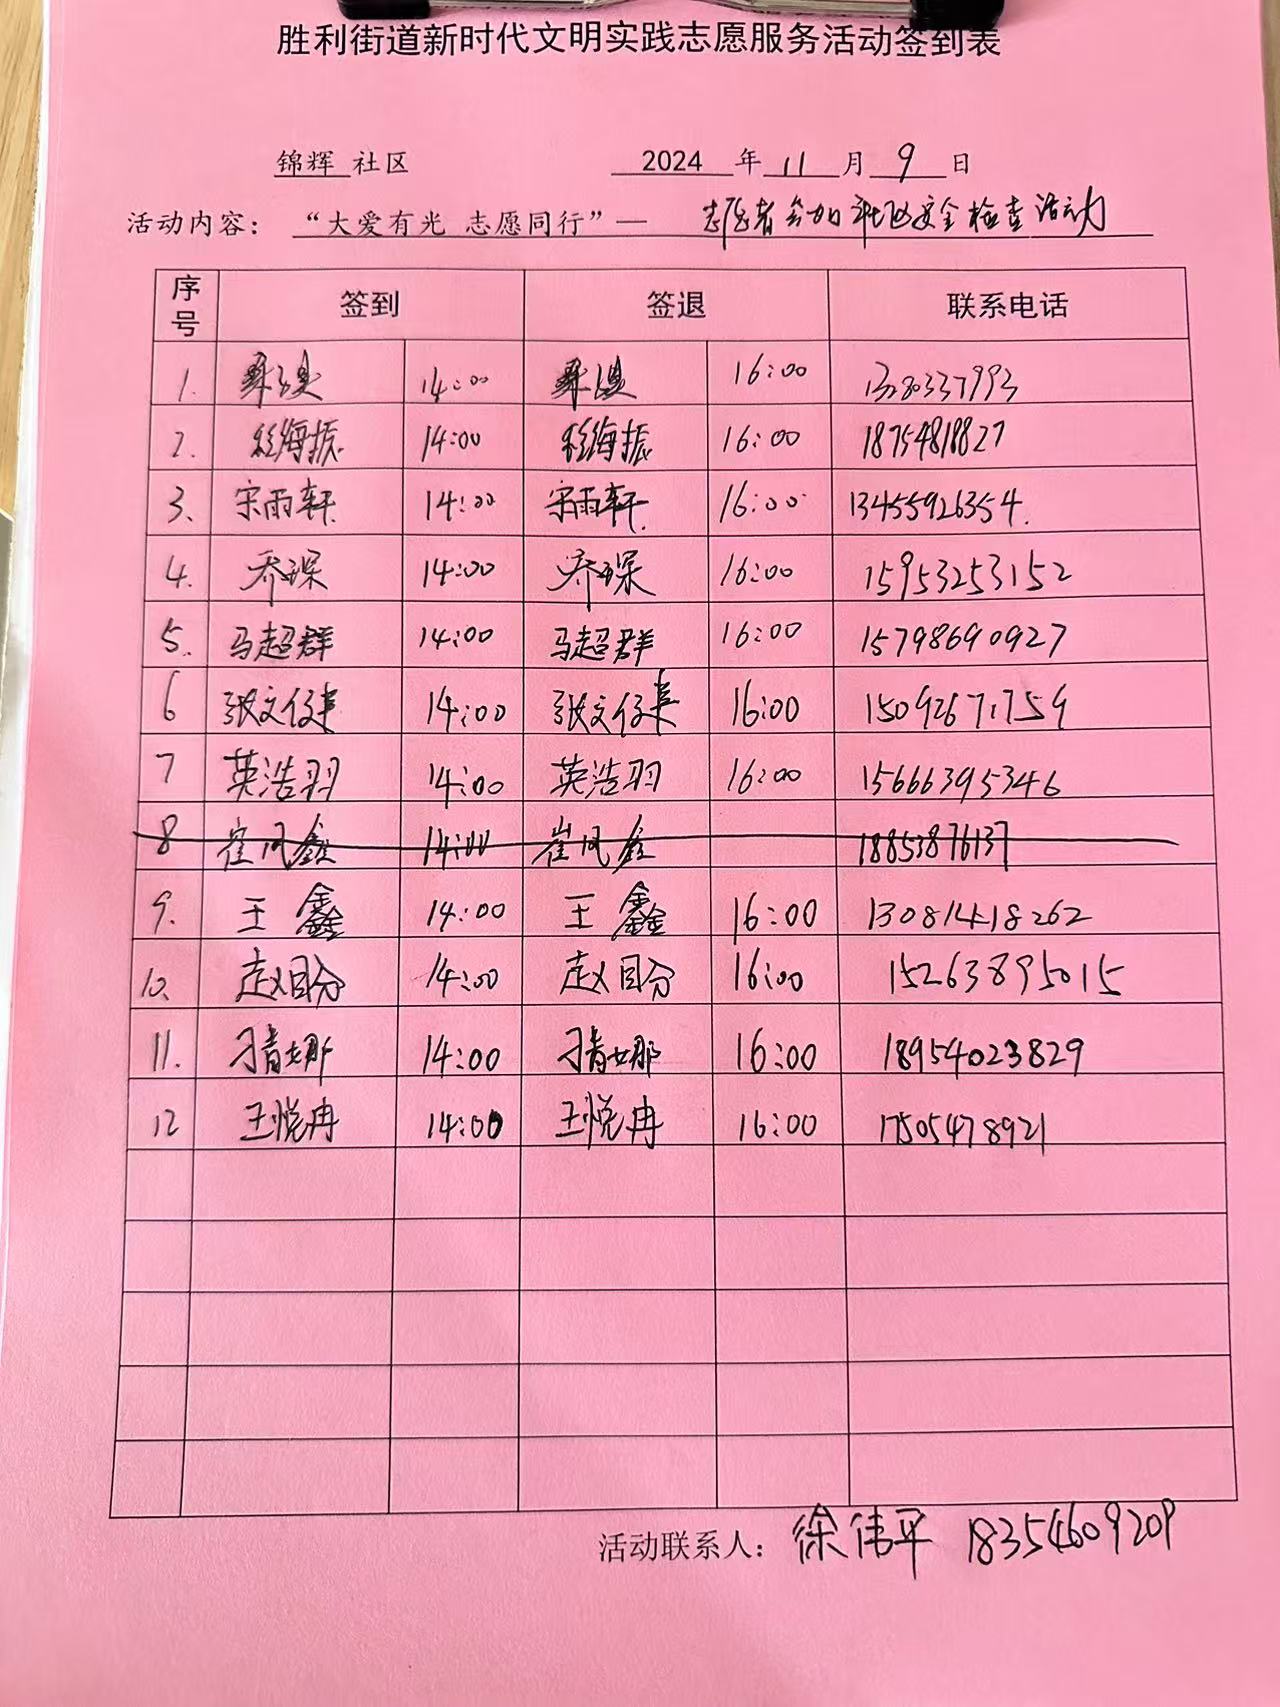 胜利街道新时代文明实践志愿服务活动签到表
锦辉 社区 2024 年 11 月 9 日
活动内容： “大爱有光 志愿同行”— 志愿者参加社区安全检查活动
序号 签到 签退 联系电话
1. 14:00 16:00
2. 海振 14:00 海振 16:00 18754818827
3. 宋雨轩 14:00 宋雨轩 16:00 13455926354
4. 乔琛 14:00 乔琛 16:00 15953253152
5. 马超群 14:00 马超群 16:00 15798690927
6 张文 14:00 张文 16:00 15092671759
7 英浩羽 14:00 英浩羽 16:00 15666395346
8 崔凤鑫 14:00 崔凤鑫 18853876137
9. 王鑫 14:00 王鑫 16:00 13081418262
10. 赵目分 14:00 赵目分 16:00 15263895015
11. 14:00 16:00 18954023829
12 王悦冉 14:00 王悦冉 16:00 17505478921
活动联系人： 徐伟平 18354609209